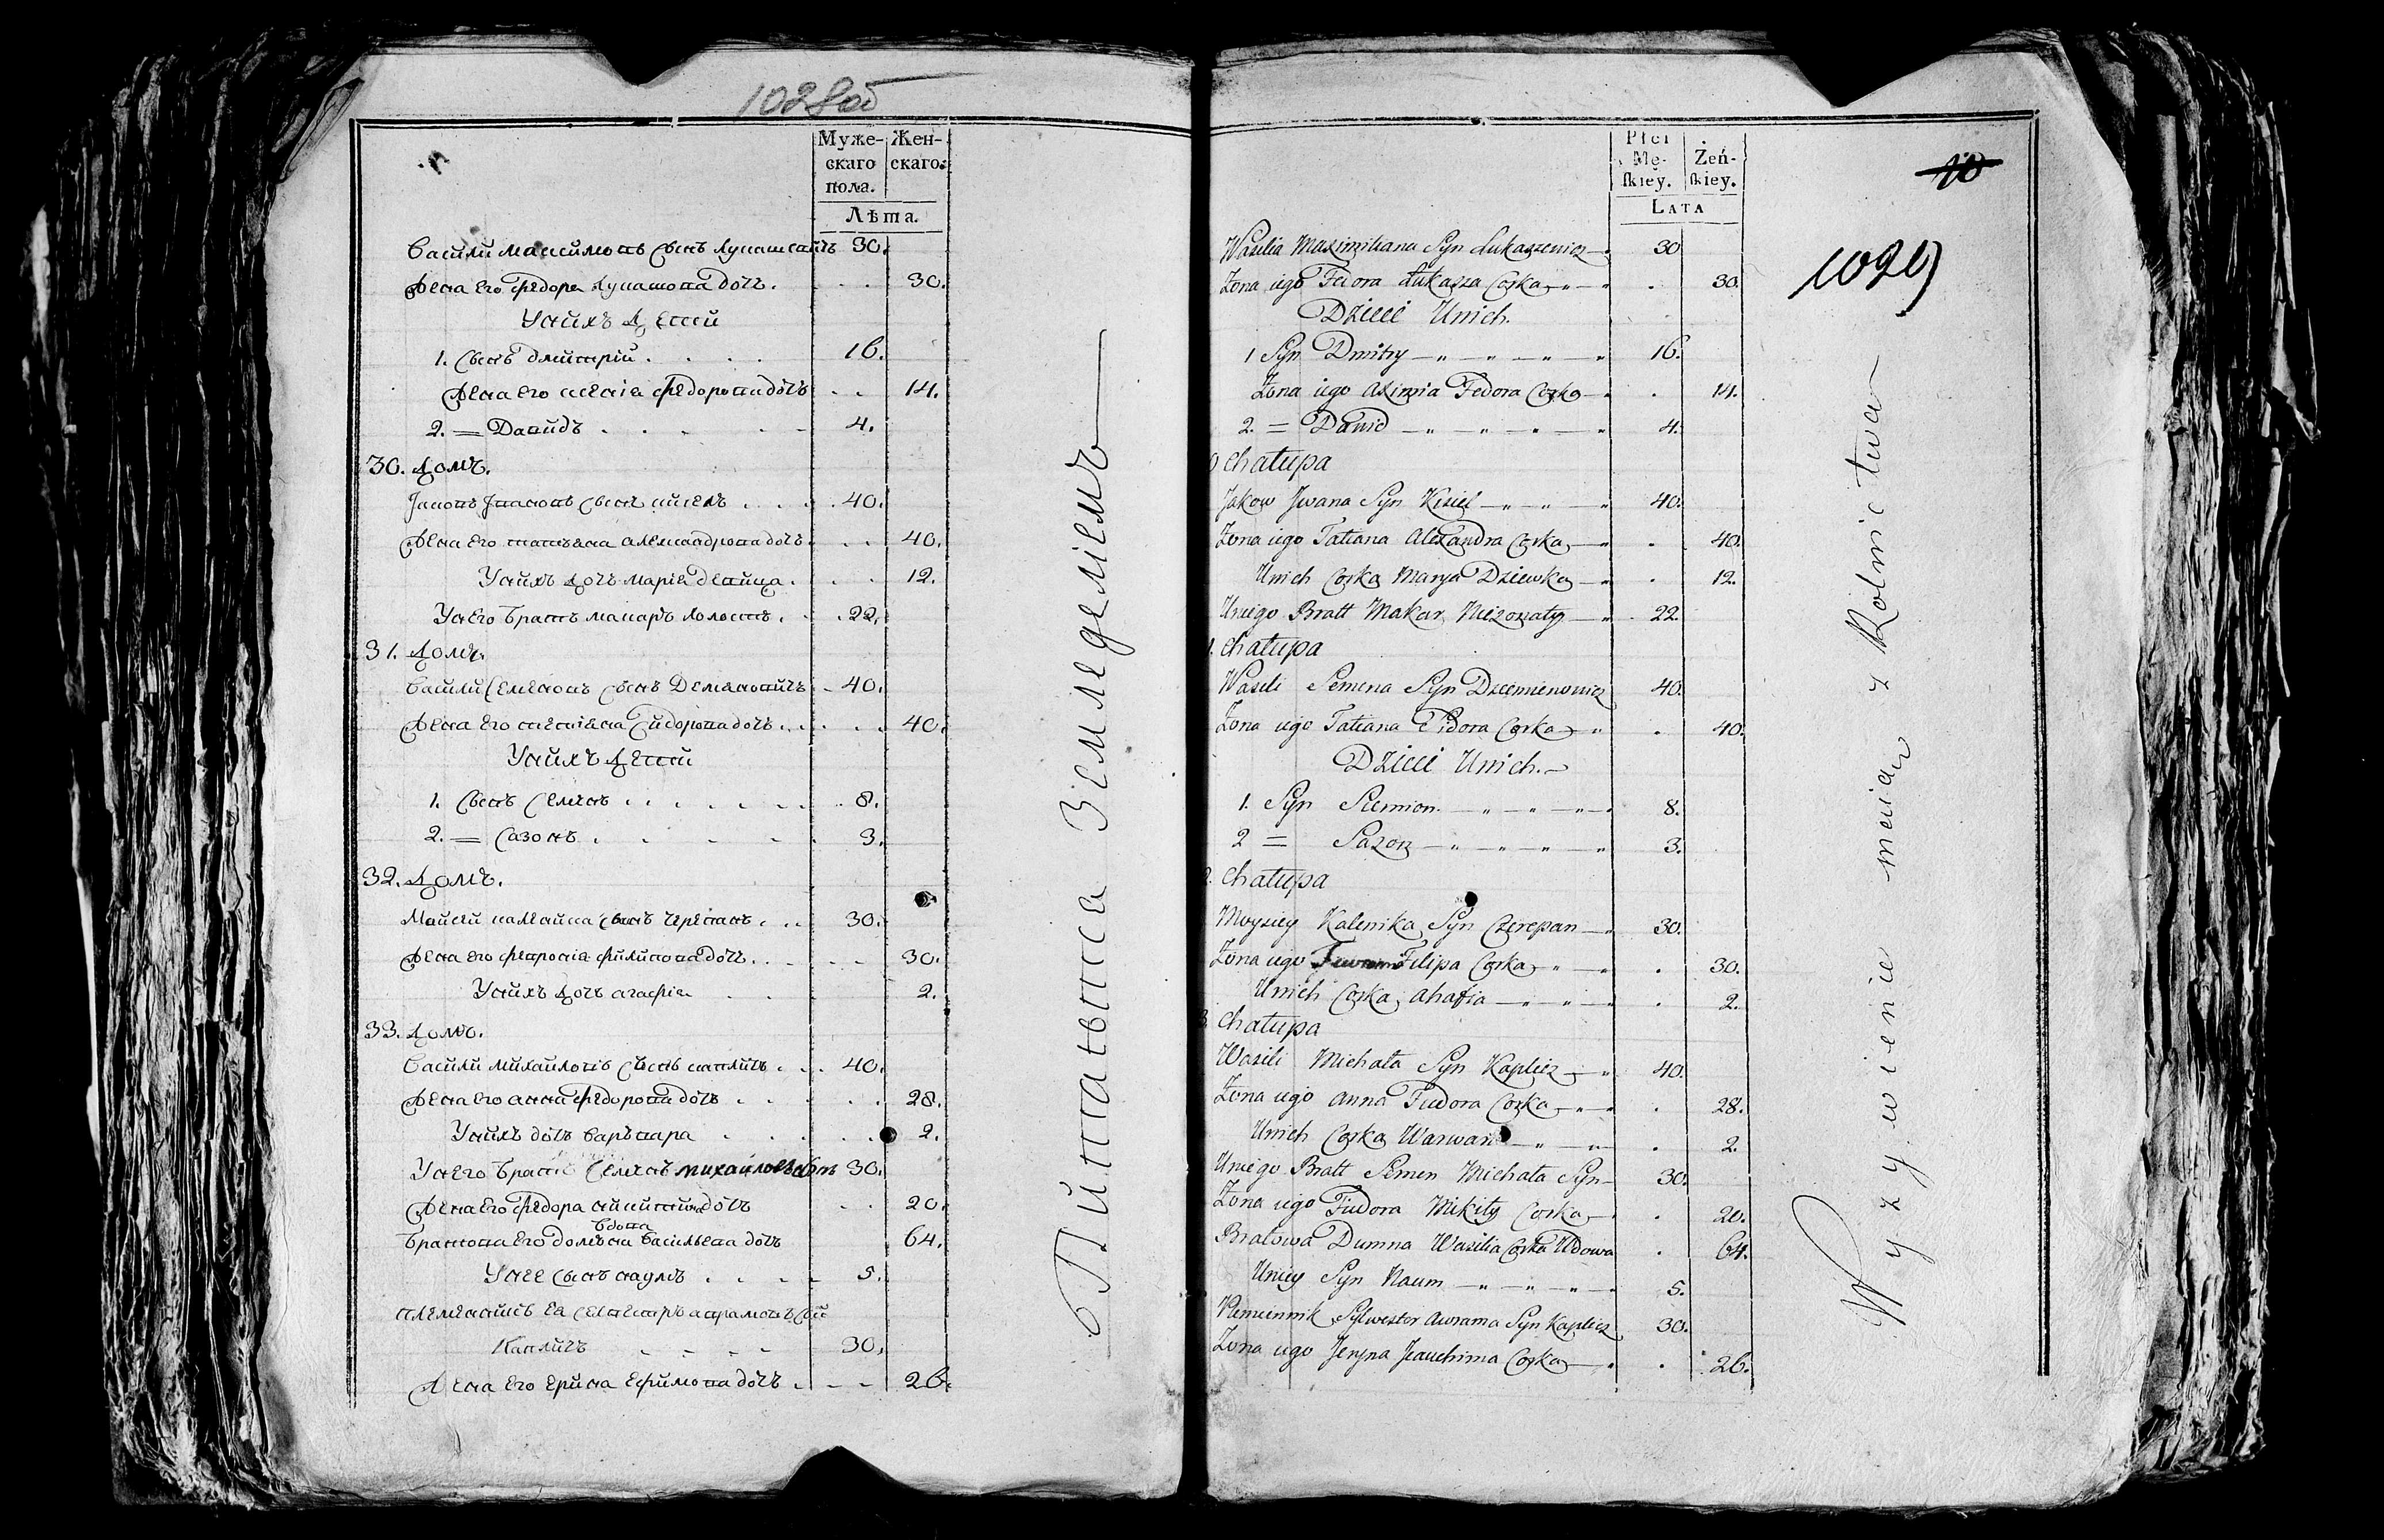 1028 об
Муже-
скаго
пола.
Жен-
скаго.
Лѣта.
Васили максимовъ сынъ лукашевичъ 30.
Жена его федора лукашова дочь. 30.
У нихъ дети
1. Сынъ дмитрій . . . . 16.
Жена его федорова дочь 14.
2. = Давидъ . . . . 4.
30. Домъ.
Јаковъ Јвановъ сынъ кисель . . . 40.
Жена его татьяна александрова дочь. 40.
У нихъ дочь марія девица. 12.
У него братъ макаръ холостъ. 22.
31. Домъ.
Васили Семеновъ сынъ Деменовичъ 40.
Жена его Сидорова дочь. 40.
У нихъ дети
1. Сынъ Семенъ . . . . 8.
2. = Сазонъ . . . . 3.
32. Домъ.
Мойсей каленика сынъ черепанъ . . . 30.
Жена его филипова дочь. 30.
У нихъ дочь агафія 2.
33. Домъ.
Васили михайловъ сынъ капличъ . . . 40.
Жена его анна федорова дочь 28.
У нихъ дочь варъвара 2.
У него братъ Семенъ михайловъ сынъ 30.
Жена его федора никитина дочь 20.
вдова
Братова его домъна васильева дочь 64.
У нее сынъ наумъ . . . . 5.
племеникъ ея селвестръ аврамовъ сынъ
Капличъ 30.
Жена его ерина ефимова дочь . 26.
Питаются Земледелиемъ
Płci
Mę-
ſkiey.
Żeń-
ſkiey.
LATA
10
1029
Wasilia Maximiliana Syn Łukaszewicz 30
Zona iego Fedora Łukasza Corka 30.
Dzieci Unich.
1 Syn Dmitry 16.
Zona iego Axinia Fedora Corka 14.
2. = Dawid 4.
chałupa
Jakow Jwana Syn Kisiel 40.
Zona iego Tatiana Alexandra Corka 40.
Unich Corka Marya Dziewka 12.
Uniego Bratt Makar Niezonaty 22.
chałupa
Wasili Semena Syn Dziemienowicz 40.
Zona iego Tatiana Sidora Corka 40.
Dzieci Unich.
1. Syn Siemion 8.
2 = Sazon 3.
chałupa
Moysiey Kalenika Syn Czerepan 30.
Zona iego Filipa Corka 30.
Unich Corka Ahafia 2.
chałupa
Wasili Michała Syn Kaplicz 40.
Zona iego Anna Fiedora Corka 28.
Unich Corka Warwara 2.
Uniego Bratt Semen Michała Syn 30.
Zona iego Fiedora Mikity Corka 20.
Bratowa Dumna Wasilia Corka Udowa 64.
Uniey Syn Naum 5.
Plemiennik Sylwester Awrama Syn Kaplicz 30.
Zona iego Jeryna Jeauchima Corka 26.
Wyzywienie maią z Rolnictwa